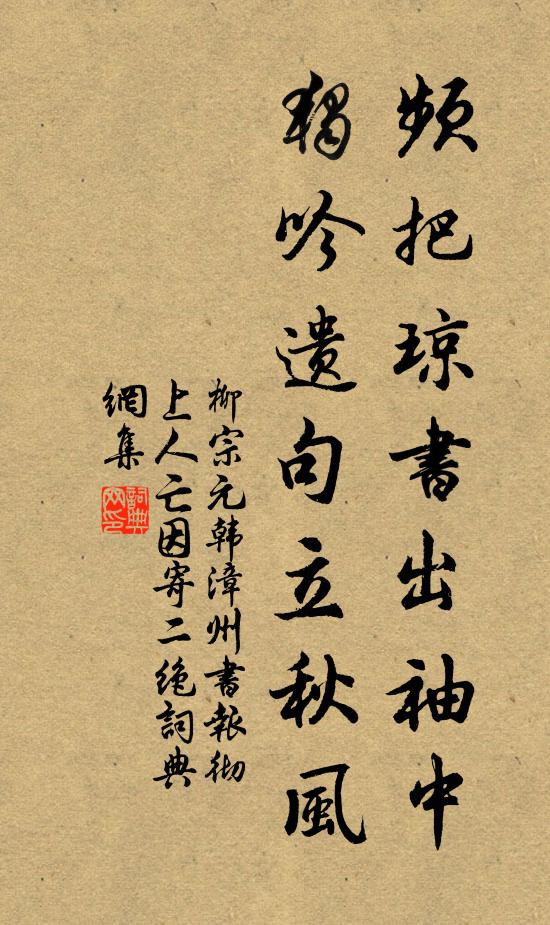 頻把琼書出袖中
獨吟遗句立秋風
柳宗元韩漳州書報彻
上人亡因寄二绝詞典
網集
詞典
网印